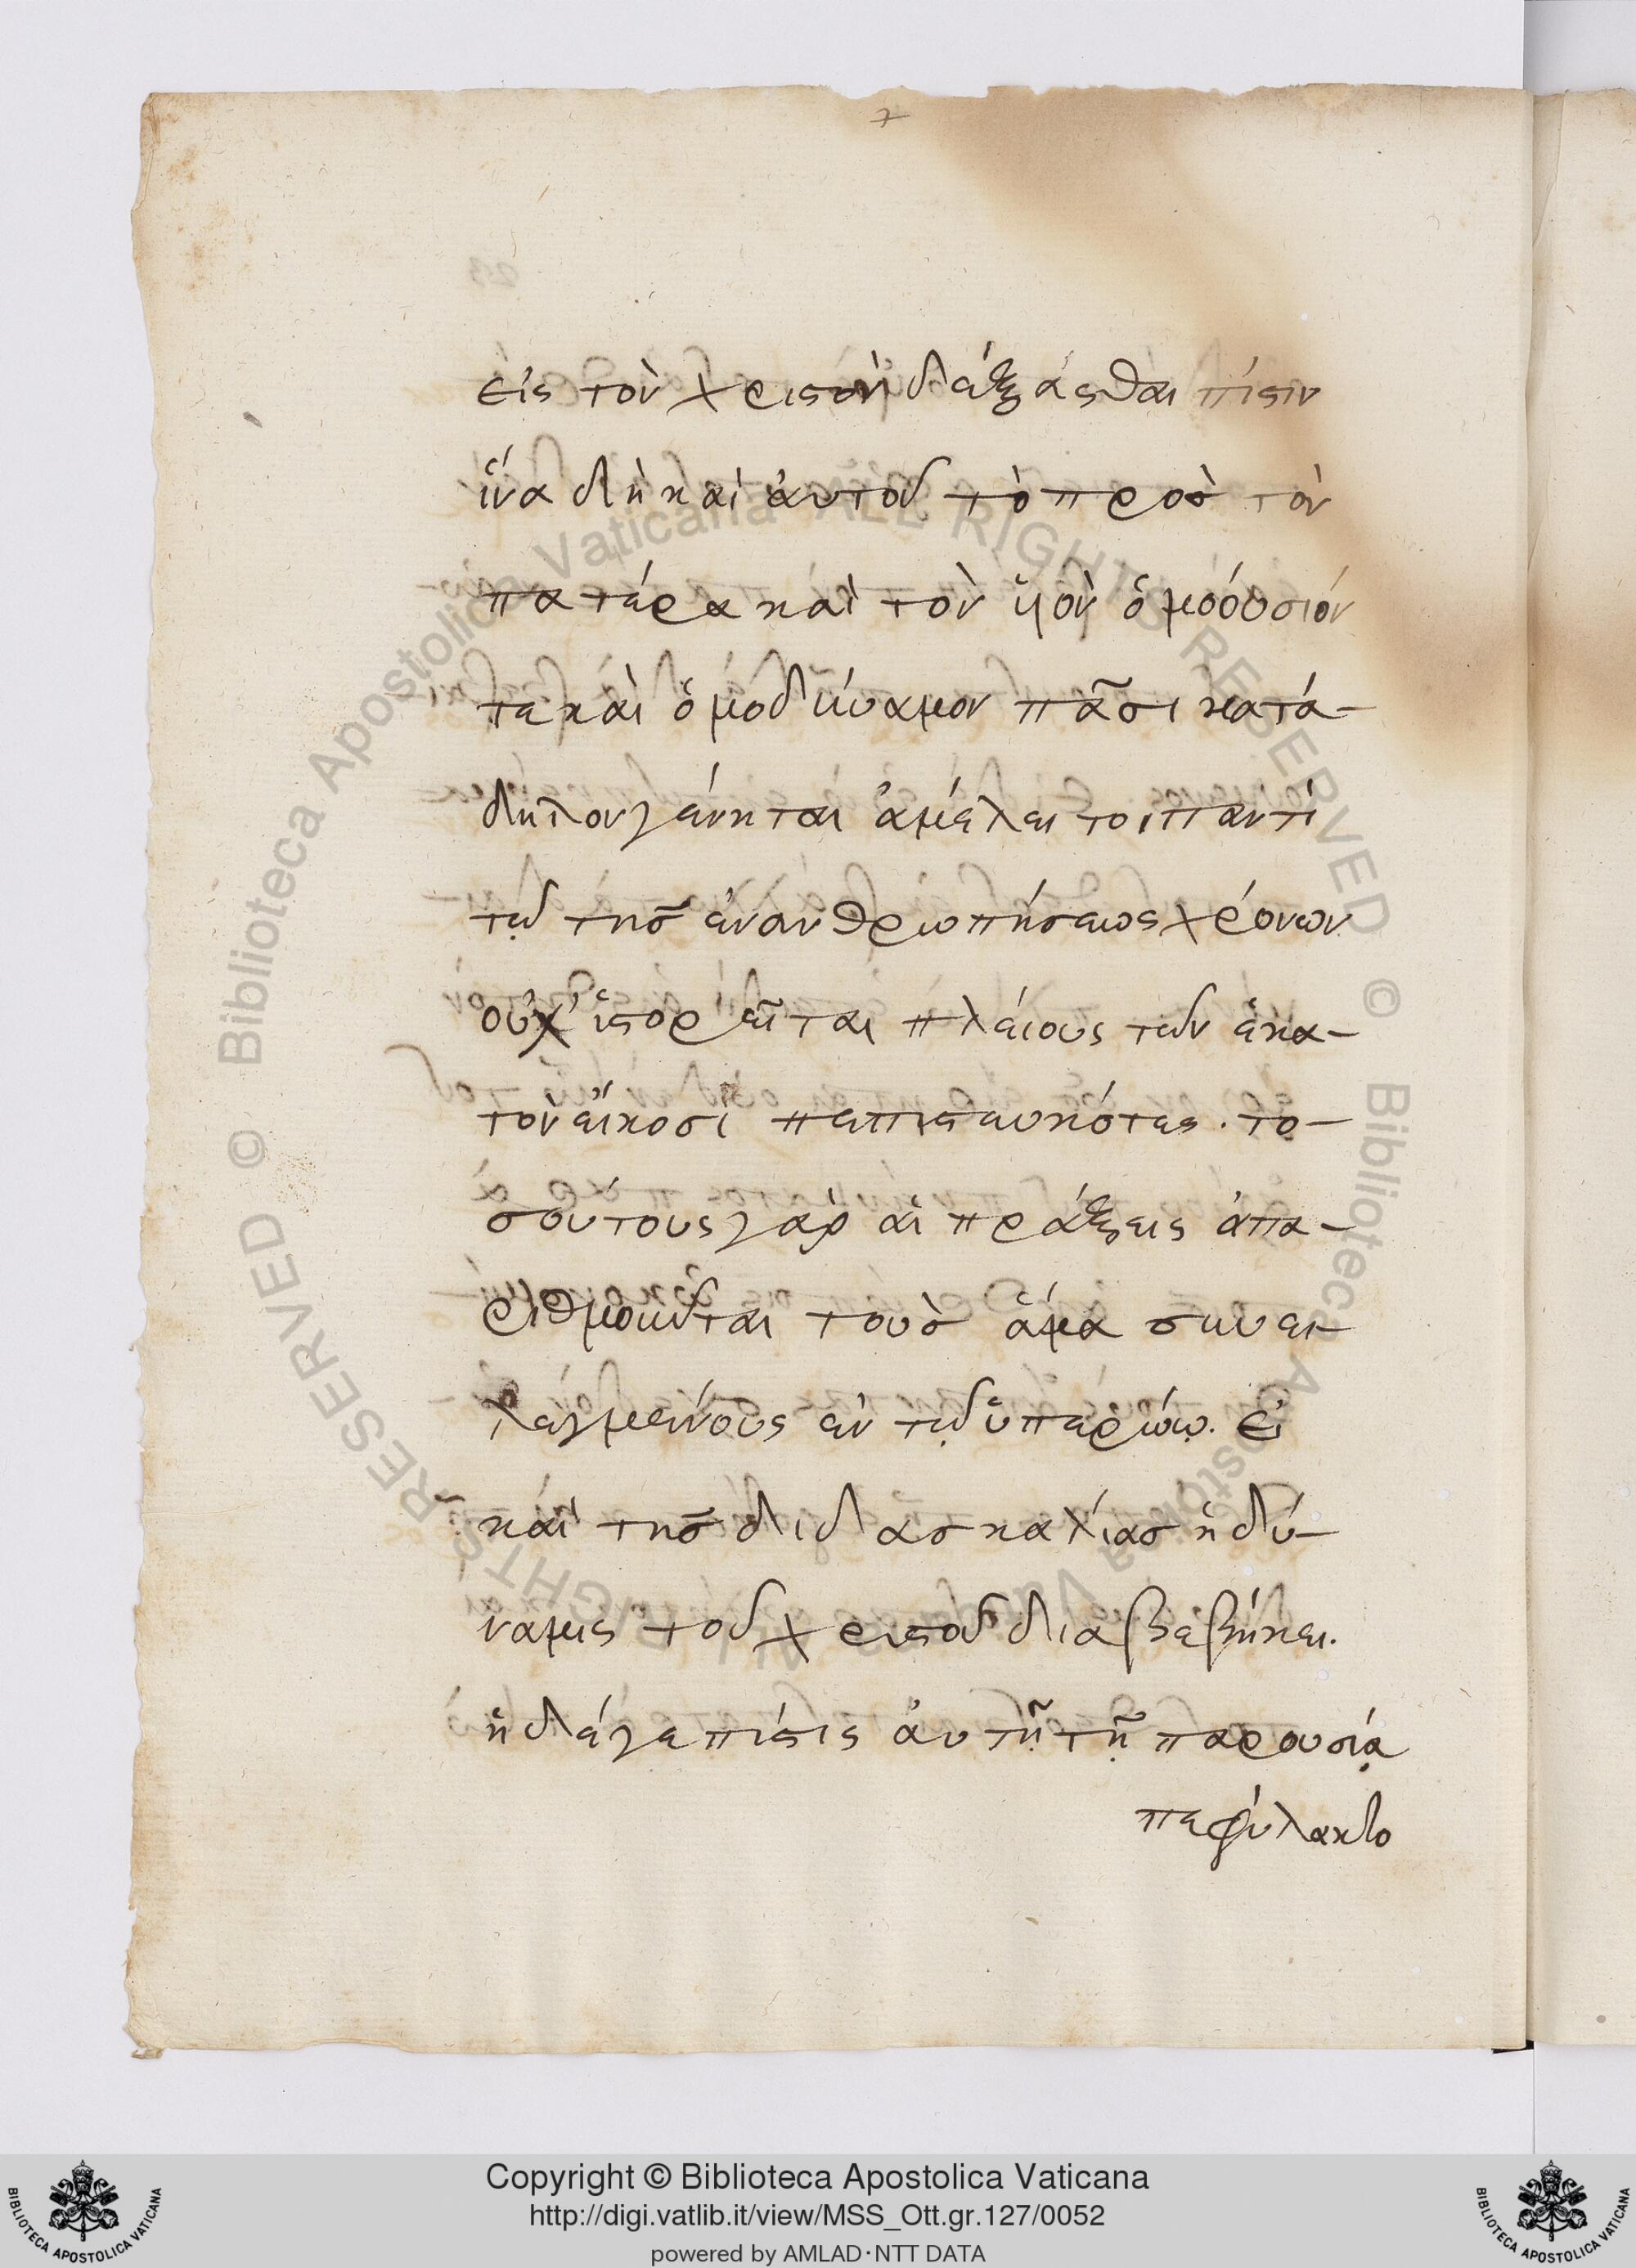 εἰς τὸν χριστὸν δέξάσθαι πίστιν
ἵνα δὴ καὶ ἀυτοῦ τὸ προσ τὸν
πατέρα καὶ τὸν ὑιὸν ὁμοόυσιόν
τε καὶ ὁμοδύναμον πᾶσι κατά-
δηλον γένηται ἀμέλει τοι παντὶ
τῷ τησ ἐνανθρωπήσεως χρόνων
οὐχ' ἱστορεῖται πλέιους τῶν ἑκα-
τὸν εἴκοσι πεπιστευκότες. το-
σουτους γὰρ αἱ πράξεις ἀπα-
ριθμοῦνται τοὺσ ἅμα συνει-
λεγμένους ἐν τῷ ὑπερώω. εἰ
καὶ τησ διδασκαλίασ ἡ δύ-
ναμις τοῦ χριστοῦ διαβεβήκει.
ἡ δέ γε πίστις ἀυτῆ τῆ παρουσίᾳ
πεφύλακτο
Copyright © Biblioteca Apostolica Vaticana
http://digi.vatlib.it/view/MSS_Ott.gr.127/0052
powered by AMLAD·NTT DATA
BIBLIOTECA APOSTOLICA VATICANA
BIBLIOTECA APOSTOLICA VATICANA
© Biblioteca Apostolica Vaticana ALL RIGHTS RESERVED © Biblioteca Apostolica Vaticana ALL RIGHTS RESERVED